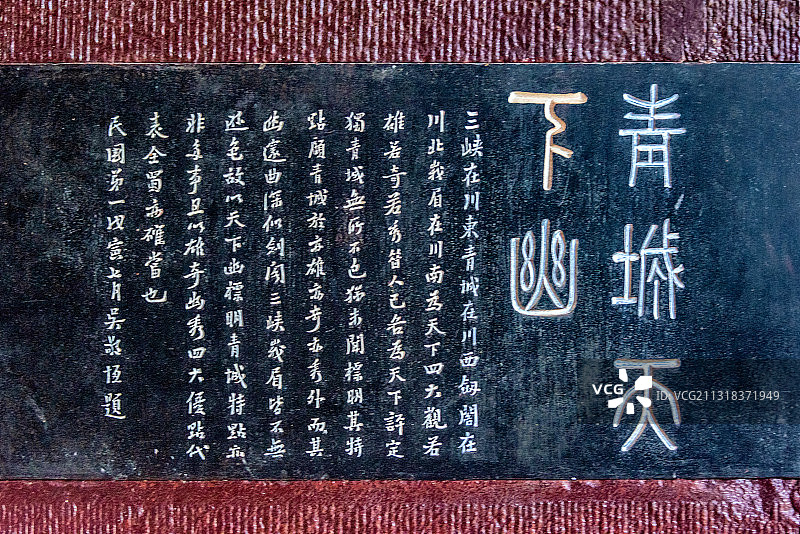 青城天
下幽
三峽在川東青城在川西劍閣在
川北峩眉在川南為天下四大觀若
雄若奇若秀昔人已各為天下評定
獨青城無所不包猶未聞標明其特
點顧青城於亦雄亦奇亦秀外而其
幽邃曲深似劍閣三峽峩眉皆不無
遜色故以天下幽標明青城特點亦
非多事且以雄奇幽秀四大優點代
表全蜀亦確當也
民國第一戊寅七月吳敬恆題
VCG VCG211318371949